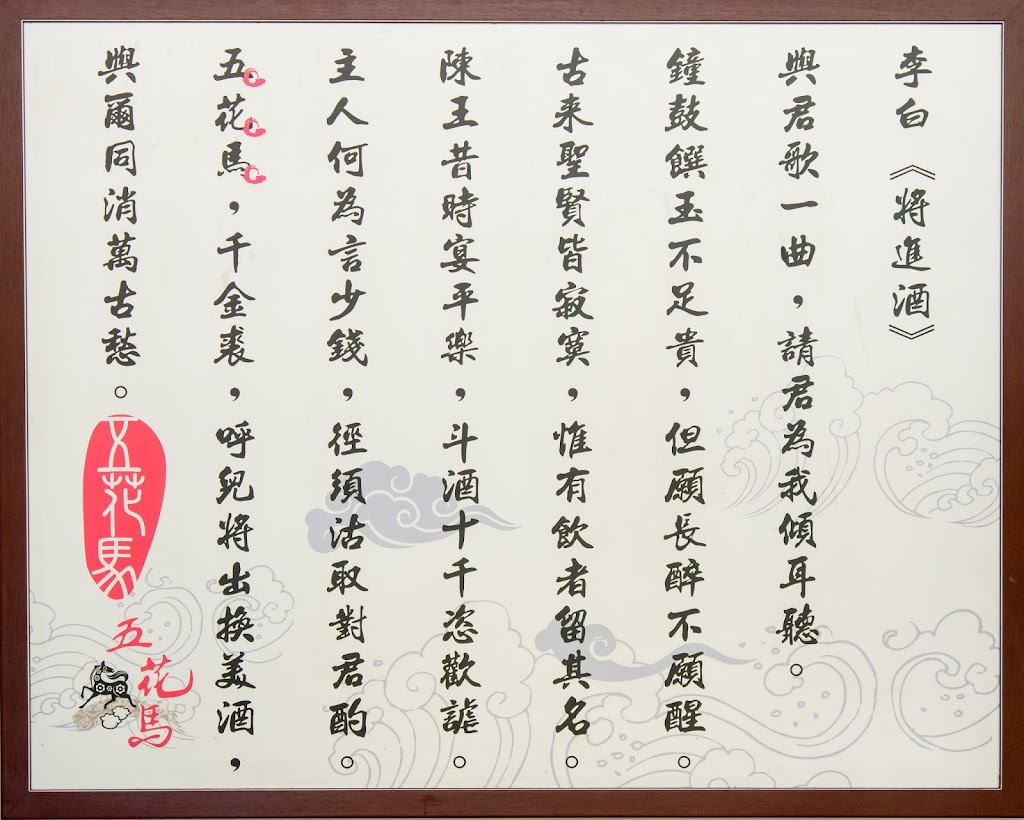 李白《將進酒》
與君歌一曲，請君為我傾耳聽。
鐘鼓饌玉不足貴，但願長醉不願醒。
古来聖賢皆寂寞，惟有飲者留其名。
陳王昔時宴平樂，斗酒十千恣歡謔。
主人何為言少錢，徑須沽取對君酌。
五花馬，千金裘，呼兒將出換美酒，
與爾同消萬古愁。
五花馬
五花馬